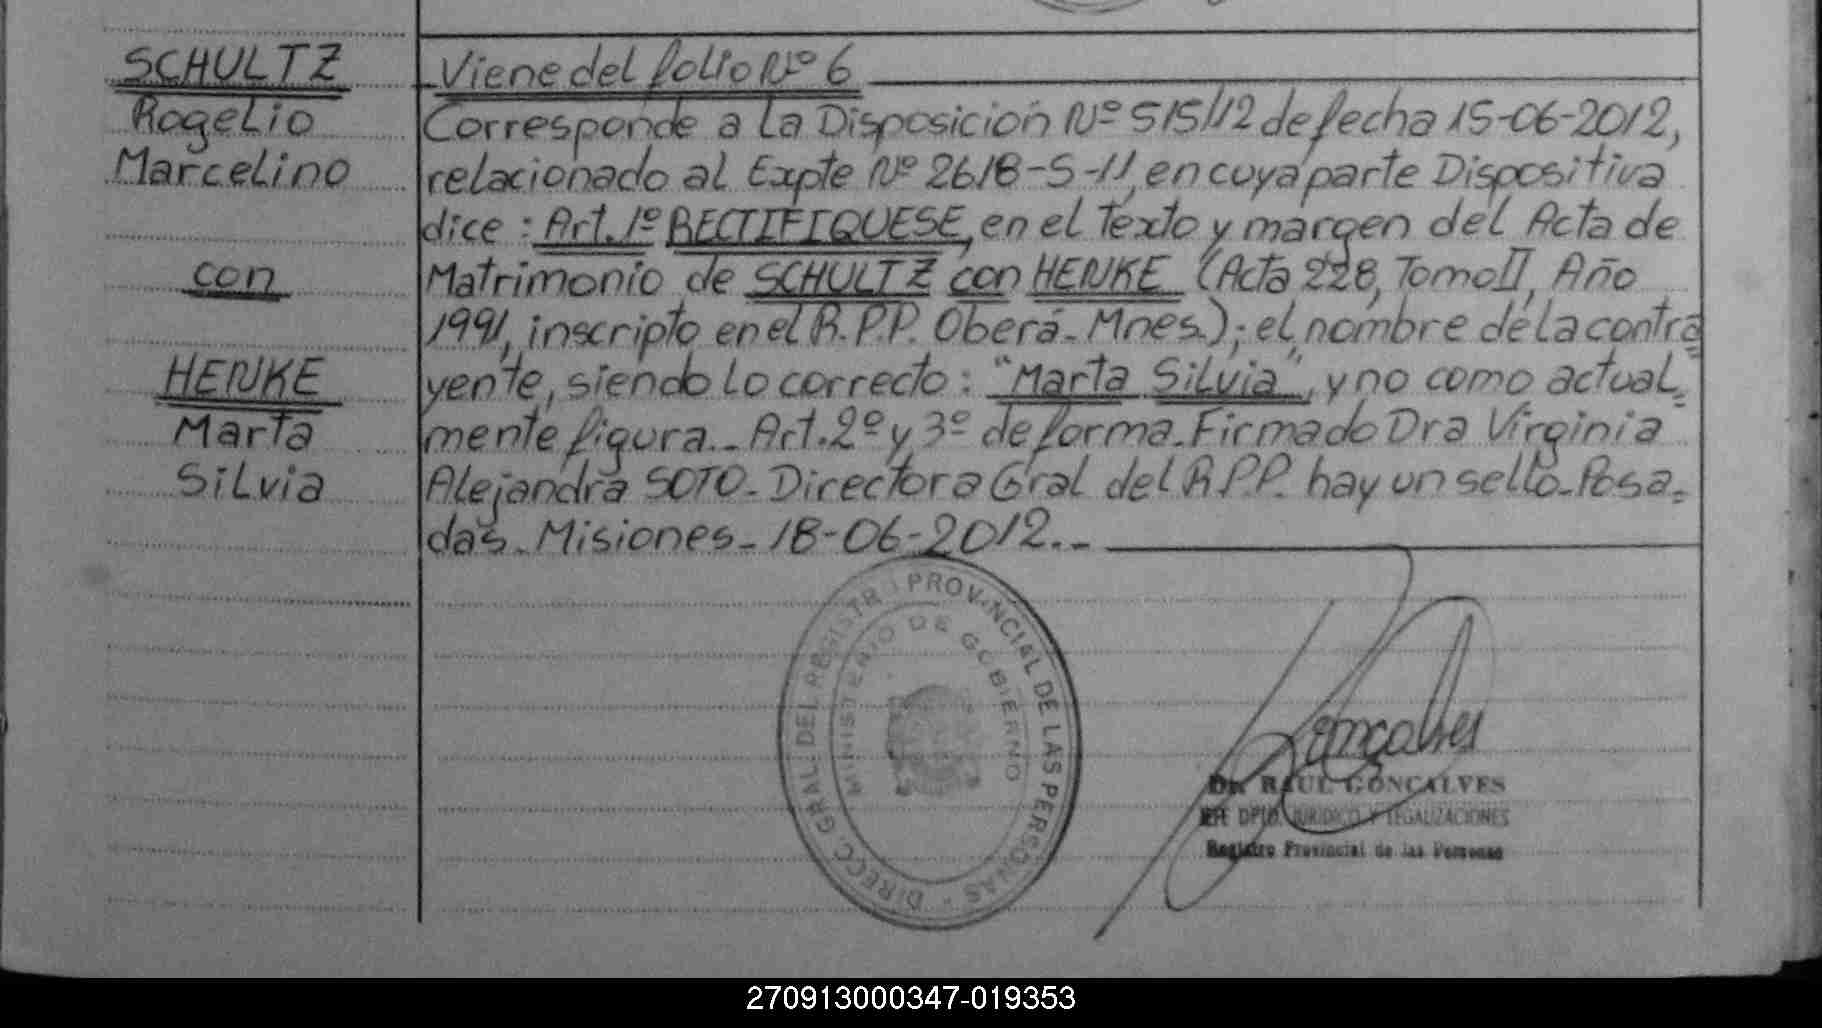 SCHULTZ
Rogelio
Marcelino
con
HENKE
Marta
Silvia
Viene del folio Nº 6
Corresponde a la Disposición Nº 515/12 de fecha 15-06-2012,
relacionado al Expte Nº 2618-S-11, en cuya parte Dispositiva
dice: Art. 1º RECTIFIQUESE, en el Texto y margen del Acta de
Matrimonio de SCHULTZ con HENKE (Acta 228, Tomo II, Año
1991, inscripto en el R.P.P. Oberá-Mnes.); el nombre de la contra=
yente, siendo lo correcto: "Marta Silvia", y no como actual=
mente figura.- Art. 2º y 3º de forma. Firmado Dra Virginia
Alejandra SOTO- Directora Gral del R.P.P. hay un sello- Posa=
das- Misiones- 18-06-2012.-
DIRECC. GRAL. DEL REGISTR PROVINCIAL DE LAS PERSONAS -
MINISTERIO DE GOBIERNO
Gonçalves
Dr. RAUL GONÇALVES
JEFE DPTO. JURIDICO Y LEGALIZACIONES
Registro Provincial de las Personas
270913000347-019353